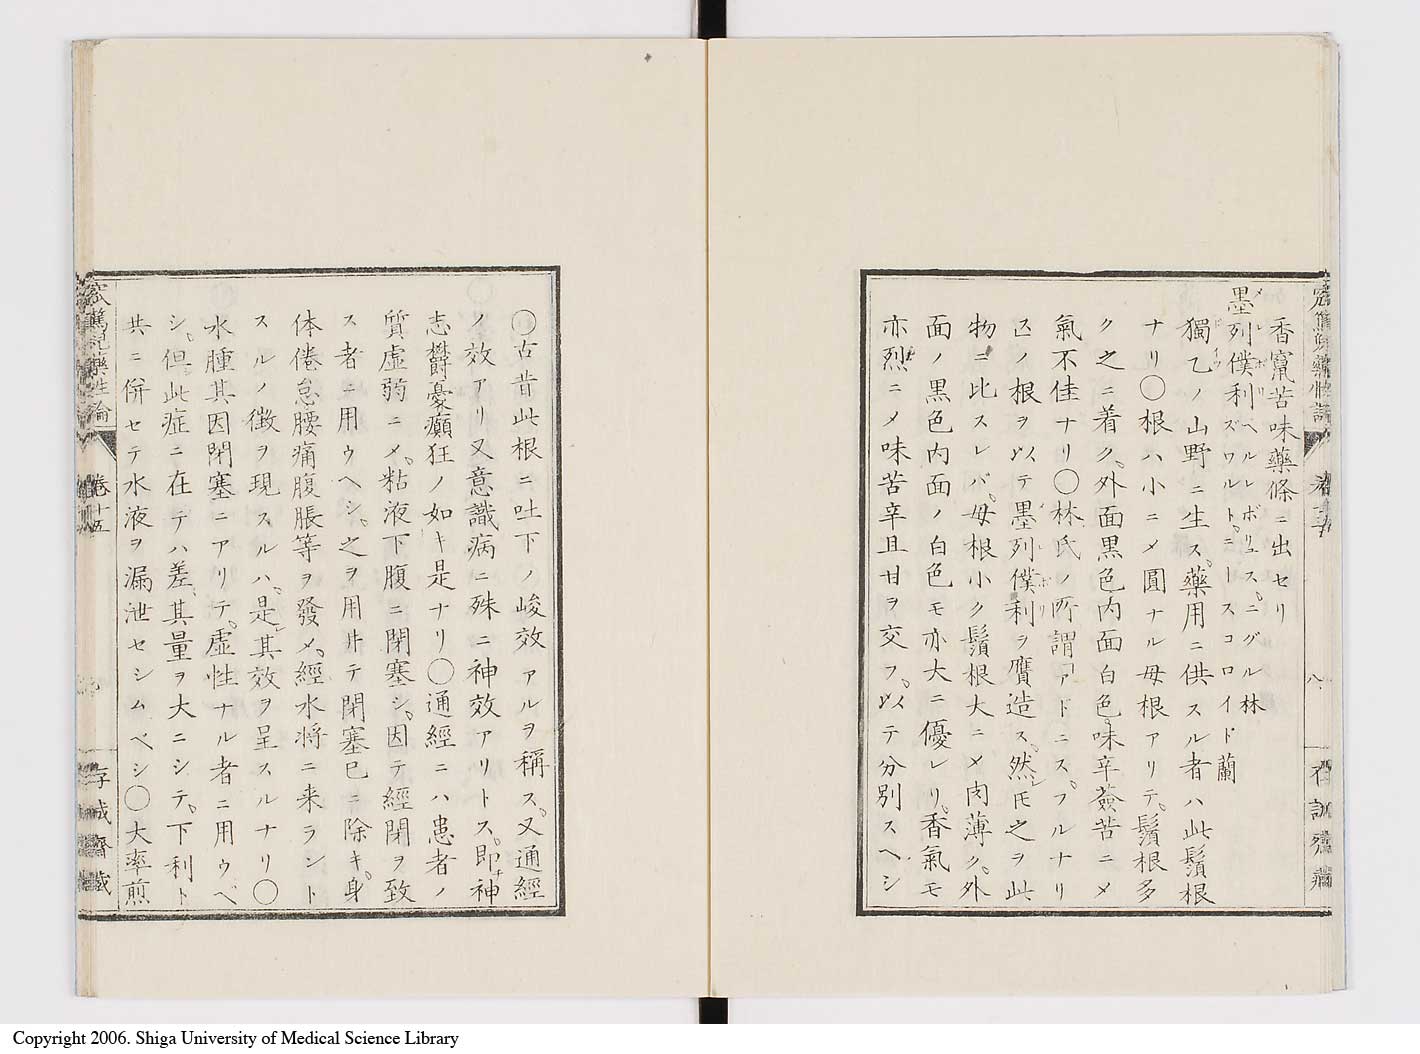 香竄苦味藥條ニ出セリ
墨列僕利ヘルレボリュス、ニグル林
ズワルト、ニースコロイド蘭
獨乙ノ山野ニ生ス、藥用ニ供スル者ハ此鬚根
ナリ〇根ハ小ニメ圓ナル母根アリテ、鬚根多
ク之ニ着ク、外面黒色内面白色、味辛薟苦ニメ
氣不佳ナリ〇林氏ノ所謂アドニス、フルナリ
スノ根ヲ以テ墨列僕利ヲ贋造ス、然レ𪜈之ヲ此
物ニ比スレバ、母根小ク鬚根大ニメ肉薄ク、外
面ノ黒色内面ノ白色モ亦大ニ優レリ、香氣モ
亦烈ニメ味苦辛且甘ヲ交フ、以テ分別スヘシ
〇古昔此根ニ吐下ノ峻效アルヲ稱ス、又通經
ノ效アリ又意識病ニ殊ニ神效アリトス、即神
志欝憂癲狂ノ如キ是ナリ〇通經ニハ患者ノ
質虚弱ニメ、粘液下腹ニ閉塞シ、因テ經閉ヲ致
ス者ニ用ウヘシ、之ヲ用井テ閉塞已ニ除キ、身
体倦怠腰痛腹脹等ヲ發メ、經水將ニ来ラント
スルノ徴ヲ現スルハ、是其效ヲ呈スルナリ〇
水腫其因閉塞ニアリテ、虚性ナル者ニ用ウベ
シ、但此症ニ在テハ差其量ヲ大ニシテ、下利ト
共ニ併セテ水液ヲ漏泄セシムベシ〇大率煎
窊篤兒藥性論
卷十五
存誠齋藏
Copyright 2006. Shiga University of Medical Science Library